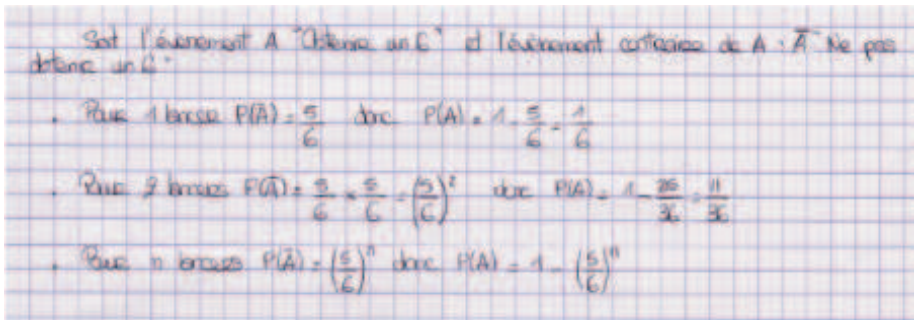 Soit l'évènement A "Obtenir un 6" et l'évènement contraire de A : A̅ "Ne pas
obtenir un 6"
. Pour 1 lancer P(A̅) = 5/6 donc P(A) = 1 - 5/6 = 1/6
. Pour 2 lancers P(A̅) = 5/6 × 5/6 = (5/6)² donc P(A) = 1 - 25/36 = 11/36
. Pour n lancers P(A̅) = (5/6)ⁿ donc P(A) = 1 - (5/6)ⁿ